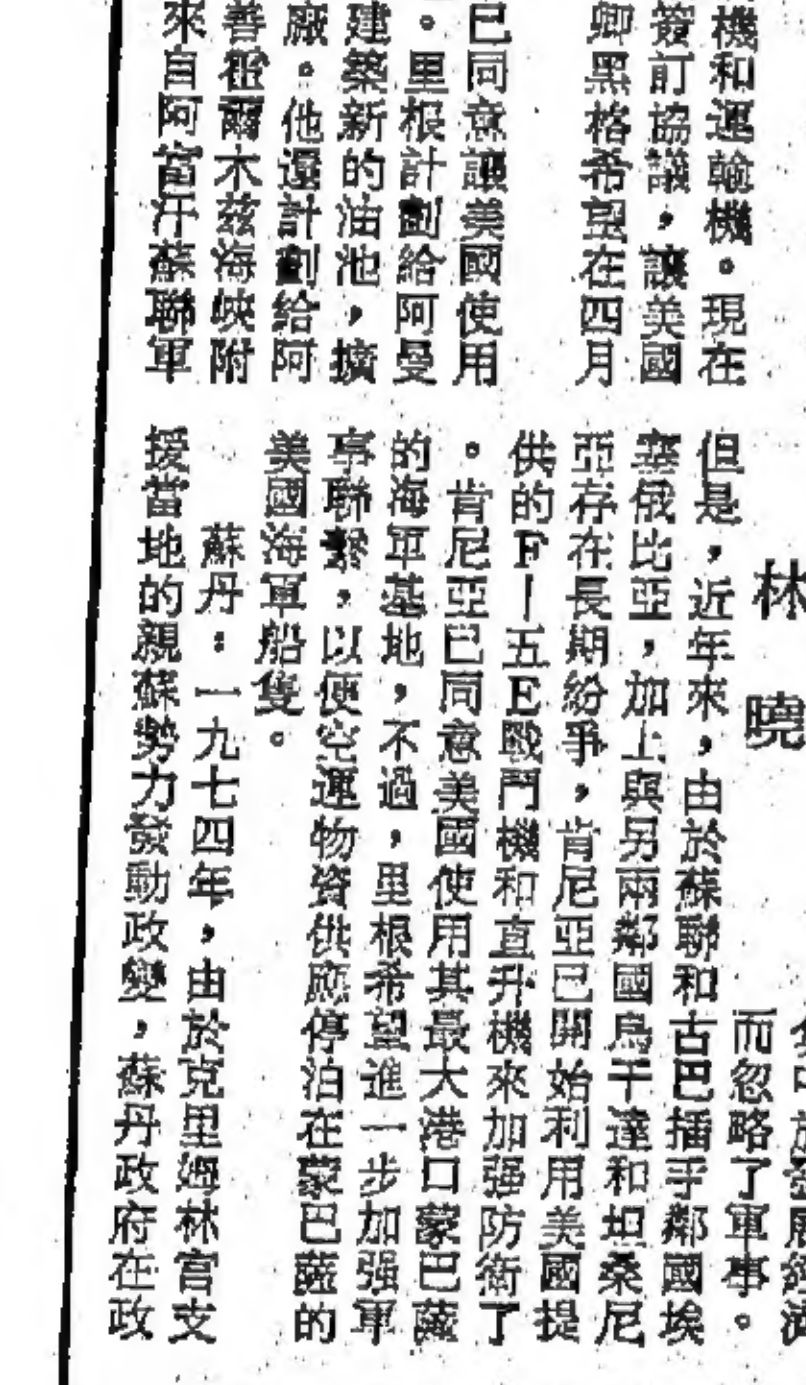 機和運輸機。現在
簽訂協議,讓美國
卿黑格希望在四月
已同意讓美國使用
。里根計劃給阿曼
建築新的油池,擴
廠。他還計劃給阿
善霍爾木茲海峽附
來自阿富汗蘇聯軍
林曉
中於發展經濟
而忽略了軍事。
但是,近年來,由於蘇聯和古巴插手鄰國埃
塞俄比亞,加上與另兩鄰國烏干達和坦桑尼
亞存在長期紛爭,肯尼亞已開始利用美國提
供的F—五E戰鬥機和直升機來加强防衛了
。肯尼亞已同意美國使用其最大港口蒙巴薩
的海軍基地,不過,里根希望進一步加强軍
事聯繫,以便空運物資供應停泊在蒙巴薩的
美國海軍船隻。
蘇丹:一九七四年,由於克里姆林宮支
援當地的親蘇勢力發動政變,蘇丹政府在政